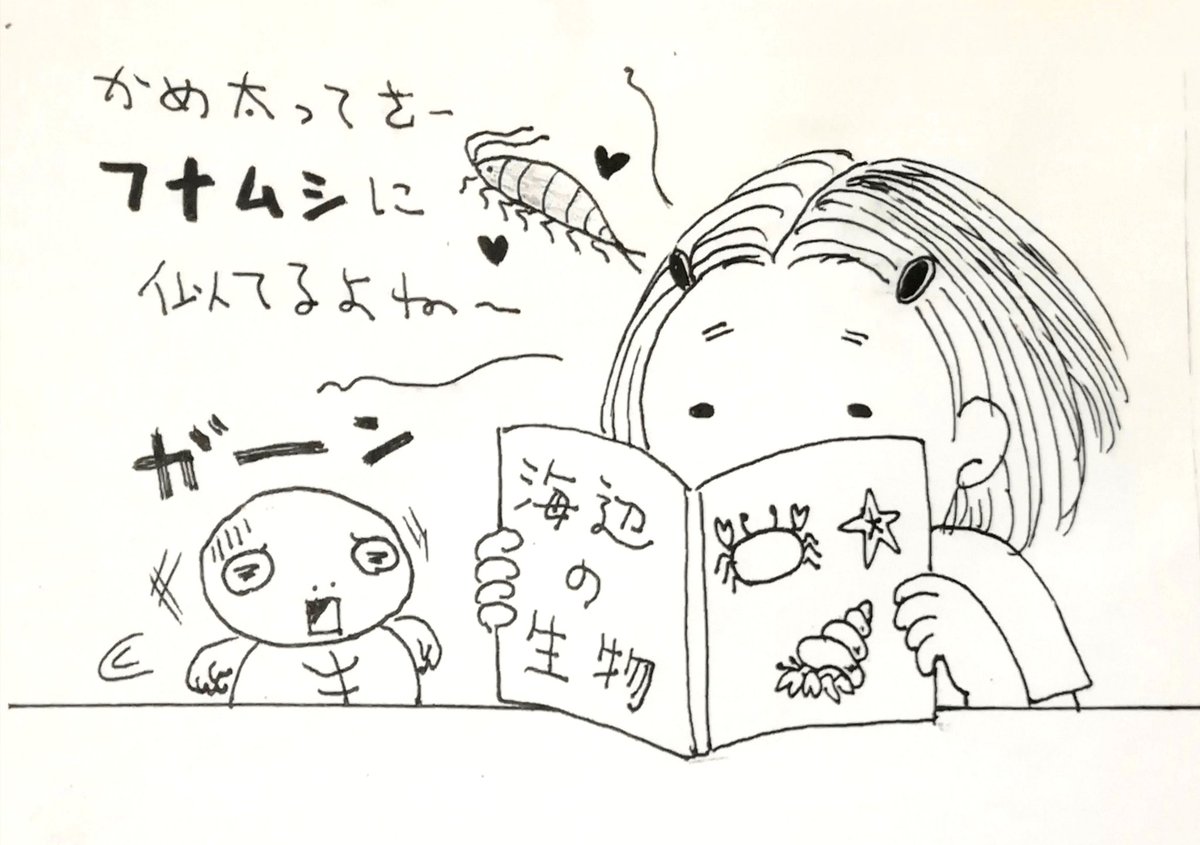 かめ太ってさー
フナムシに
似てるよね〜
ガーン
海辺
の
生物